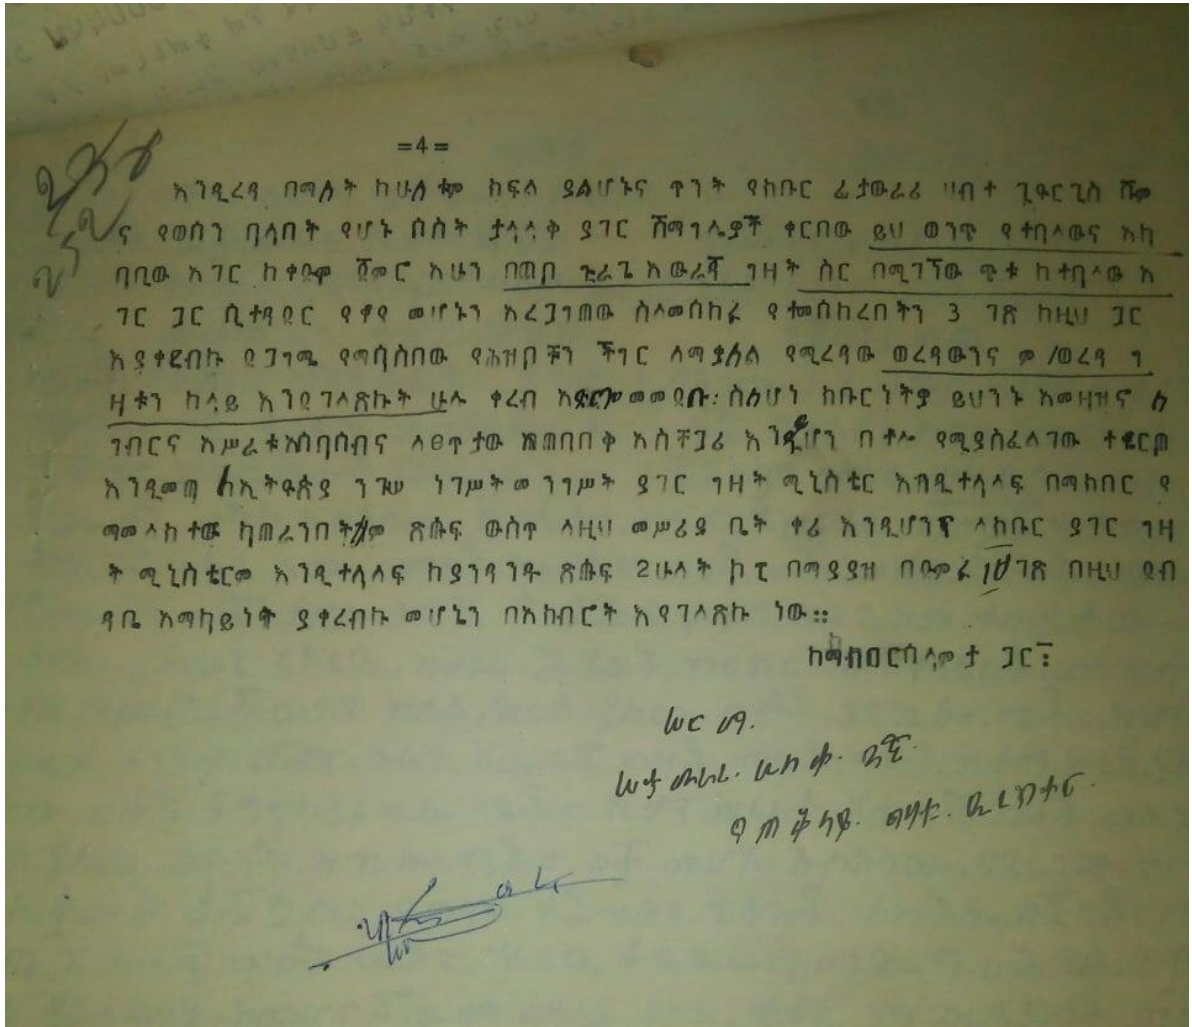 =4=
እንዲረዳ በማለት ከሁለቱም ክፍል ያልሆኑና ጥንት የክቡር ፊታውራሪ ሀብተ ጊዮርጊስ ሹም
ና የወሰን ባላበት የሆኑ ሶስት ታላላቅ ያገር ሽማግሌዎች ቀርበው ይህ ወንጥ የተባለውና አካ
ባቢው አገር ከቀድሞ ጀምሮ አሁን በጠቦ ጉራጌ አውራጃ ግዛት ስር በሚገኘው ጭቱ ከተባለው አ
ገር ጋር ሲተዳደር የቆየ መሆኑን አረጋግጠው ስላመሰከሩ የተመሰከረበትን 3 ገጽ ከዚህ ጋር
እያቀረብኩ ደጋግሜ የማሳስበው የሕዝቦቹን ችግር ለማቃለል የሚረዳው ወረዳውንና ም/ወረዳ ግ
ዛቱን ከላይ እንደገለጽኩት ሁሉ ቀረብ አድርጎ መመደቡ ስለሆነ ክቡርነትዎ ይህንኑ አመዛዝኖ ለ
ገብርና አሥራቱ አሰባሰብና ለፀጥታው አጠባበቅ አስቸጋሪ እንዳይሆን በቶሎ የሚያስፈልገው ተቈርጦ
እንዲመጣ ለኢትዮጵያ ንጉሠ ነገሥት መንግሥት ያገር ግዛት ሚኒስቴር እንዲተላለፍ በማክበር የ
ማመለክተው ካጠራንበትም ጽሑፍ ውስጥ ለዚህ መሥሪያ ቤት ቀሪ እንዲሆንና ለክቡር ያገር ግዛ
ት ሚኒስቴርም እንዲተላለፍ ከያንዳንዱ ጽሑፍ 2ሁለት ኮፒ በማያያዝ በድምሩ ገጽ በዚህ ደብ
ዳቤ አማካይነት ያቀረብኩ መሆኔን በአክብሮት እየገለጽኩ ነው።
ከማክበር ሰላምታ ጋር፤